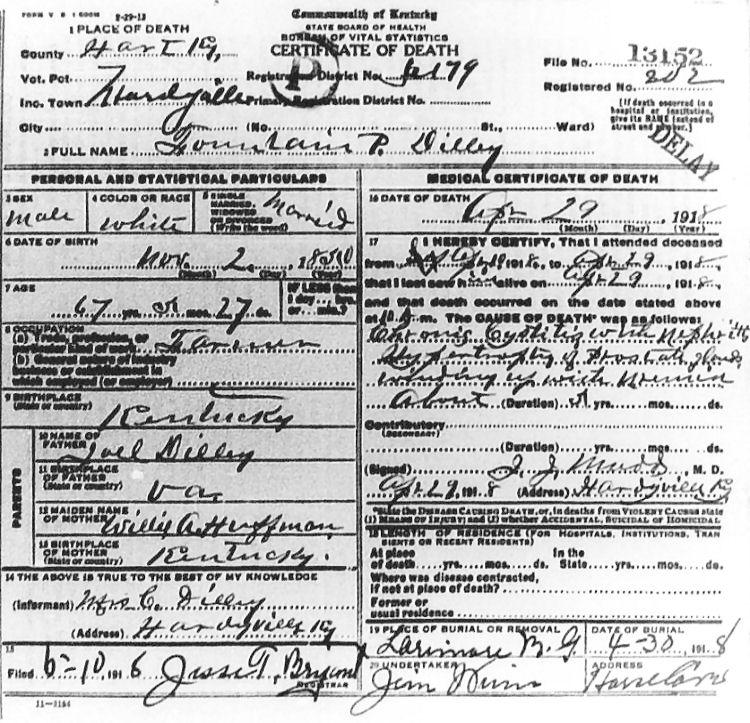 FORM V. S. 1
2-29-13
Commonwealth of Kentucky
STATE BOARD OF HEALTH
BUREAU OF VITAL STATISTICS
CERTIFICATE OF DEATH
1 PLACE OF DEATH
County Hart Ky,
Vot. Pct
Registration District No. 5179
File No. 13152
Registered No. 202
Inc. Town Hardyville Primary Registration District No.
[If death occurred in a hospital or institution, give its NAME instead of street and number.]
City (No. St., Ward)
DELAY
2 FULL NAME Fountain P. Dilley
PERSONAL AND STATISTICAL PARTICULARS
3 SEX
male
4 COLOR OR RACE
white
5 SINGLE
MARRIED,
WIDOWED
OR DIVORCED
(Write the word)
Married
6 DATE OF BIRTH
Nov. 2 1850
(Month) (Day) (Year)
7 AGE
67 yrs. 5 mos. 27 ds.
IF LESS than
1 day... hrs.
or... min.?
8 OCCUPATION
(a) Trade, profession, or
particular kind of work Farmer
(b) General nature of industry
business or establishment in
which employed (or employer)
9 BIRTHPLACE
(State or country)
Kentucky
PARENTS
10 NAME OF
FATHER
Joel Dilley
11 BIRTHPLACE
OF FATHER
(State or country)
Va
12 MAIDEN NAME
OF MOTHER Willis A. Huffman
13 BIRTHPLACE
OF MOTHER
(State or country)
Kentucky.
14 THE ABOVE IS TRUE TO THE BEST OF MY KNOWLEDGE
(Informant) Mrs C. Dilley
(Address) Hardyville Ky
15
Filed 6-10, 1916 Jesse T. Bryant
REGISTRAR
11-1184
MEDICAL CERTIFICATE OF DEATH
16 DATE OF DEATH
Apr 29 1918
(Month) (Day) (Year)
17 I HEREBY CERTIFY, That I attended deceased
from 1918, to Apr 29, 1918,
that I last saw him alive on Apr 29, 1918,
and that death occurred on the date stated above
at m. The CAUSE OF DEATH* was as follows:
Chronic Cystitis with Nephritis
Hypertrophy of Prostate Glands
winding up with Uremia
About (Duration) 5 yrs. mos. ds.
Contributory
(SECONDARY)
(Duration) yrs. mos. ds.
(Signed) J. J. M. D.
Apr 29, 1918 (Address) Hardyville Ky
*State the DISEASE CAUSING DEATH, or, in deaths from VIOLENT CAUSES state
(1) MEANS OF INJURY; and (2) whether ACCIDENTAL, SUICIDAL OR HOMICIDAL
18 LENGTH OF RESIDENCE (FOR HOSPITALS, INSTITUTIONS, TRAN
SIENTS OR RECENT RESIDENTS)
At place In the
of death yrs. mos. ds. State yrs. mos. ds.
Where was disease contracted,
if not at place of death?
Former or
usual residence
19 PLACE OF BURIAL OR REMOVAL
Larimore B. G.
DATE OF BURIAL
4-30, 1918
20 UNDERTAKER
Jim
ADDRESS
Horse Cave